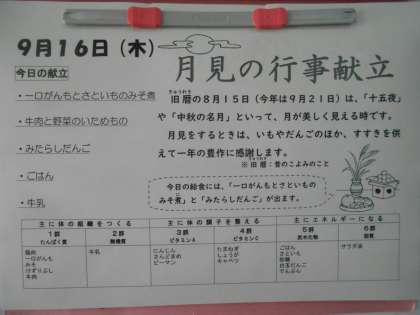 9月16日（木）
月見の行事献立
今日の献立
・一口がんもとさといものみそ煮
・牛肉と野菜のいためもの
・みたらしだんご
・ごはん
・牛乳
きゅうれき
旧暦の8月15日（今年は9月21日）は、「十五夜」
や「中秋の名月」といって、月が美しく見える時です。
月見をするときは、いもやだんごのほか、すすきを供
えて一年の豊作に感謝します。
きゅうれき
※ 旧暦：昔のこよみのこと
今日の給食には、「一口がんもとさといもの
みそ煮」と「みたらしだんご」が出ます。
主に体の組織をつくる 主に体の調子を整える 主にエネルギーになる
1群 2群 3群 4群 5群 6群
たんぱく質 無機質 ビタミンA ビタミンC 炭水化物 脂質
鶏肉 牛乳 にんじん たまねぎ ごはん サラダ油
一口がんも さんどまめ しょうが さといも
みそ ピーマン キャベツ 砂糖
けずりぶし 白玉だんご
牛肉 でんぷん